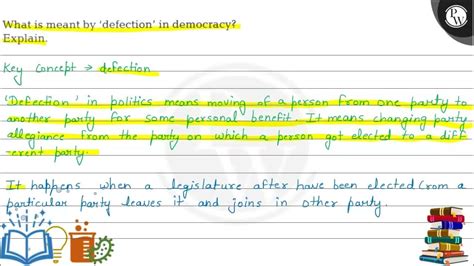 What is meant by 'defection' in democracy?
Explain.
PW
Key concept → defection
'Defection' in politics means moving of a person from one party to
another party for some personal benefit. It means changing party
allegiance from the party on which a person got elected to a diff
-erent party.
It happens when a legislature after have been elected from a
particular party leaves it and joins in other party.